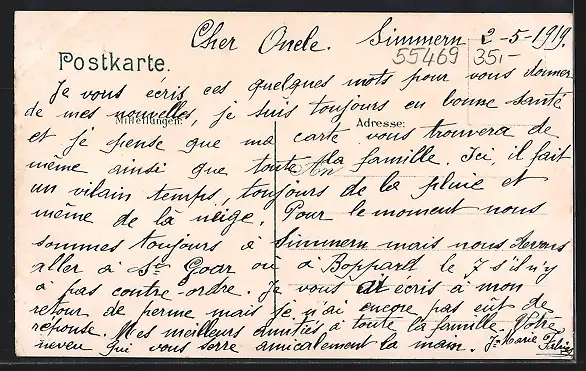 Cher Oncle. Simmern 2-5-1919.
55469 35,-
Postkarte.
Je vous écris ces quelques mots pour vous donner
de mes nouvelles, je suis toujours en bonne santé
Mitteilungen: Adresse:
et je pense que ma carte vous trouvera de
même ainsi que toute la famille. Ici, il fait
un vilain temps, toujours de la pluie et
même de la neige. Pour le moment nous
sommes toujours à Simmern mais nous devons
aller à St Goar ou à Boppard le 7 s'il n'y
à pas contre-ordre. Je vous ai écris à mon
retour de perme mais je n'ai encore pas eût de
réponse. Mes meilleurs amitiés à toute la famille. Votre
neveu qui vous serre amicalement la main. Jn Marie